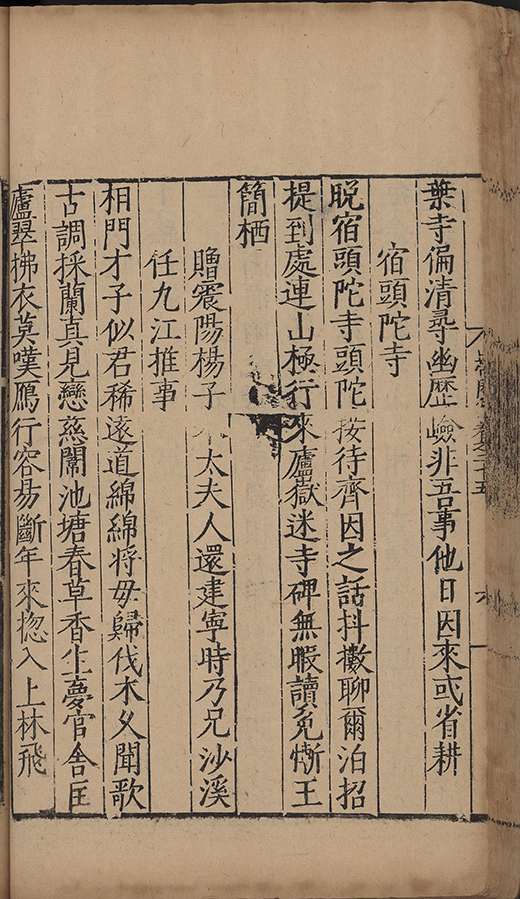 葉寺偏清尋幽歷嶮非吾事他日因來或省耕
宿頭陀寺
晚宿頭陀寺頭陀按待齊因之話抖擻聊爾泊招
提到處連山極行來廬嶽迷寺碑無暇讀免慚王
簡栖
贈震陽楊子太夫人還建寧時乃兄沙溪
任九江推事
相門才子似君稀遠道綿綿將毋歸伐木乆聞歌
古調採蘭真見戀慈闈池塘春草香生夢官舍匡
廬翠拂衣莫嘆鴈行容易斷年來揔入上林飛